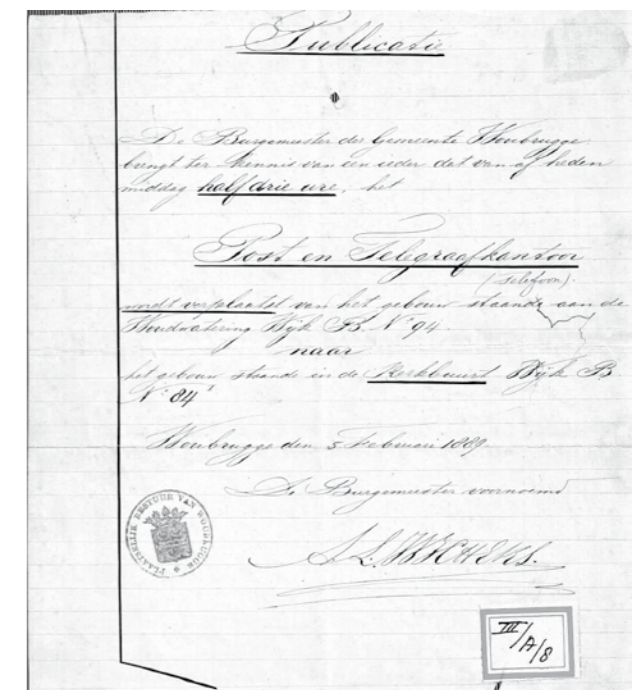 Publicatie
De Burgemeester der Gemeente Woubrugge
brengt ter kennis van een ieder dat van af heden
middag half drie ure, het
Post en Telegraafkantoor
(Telefoon).
wordt verplaatst van het gebouw staande aan de
Woudwatering Wijk B. No 94.
naar
het gebouw staande in de Kerkbuurt Wijk B
No 84
Woubrugge den 5 Februari 1889.
De Burgemeester voornoemd
PLAATSELIJK BESTUUR VAN WOUBRUGGE
III/A/8